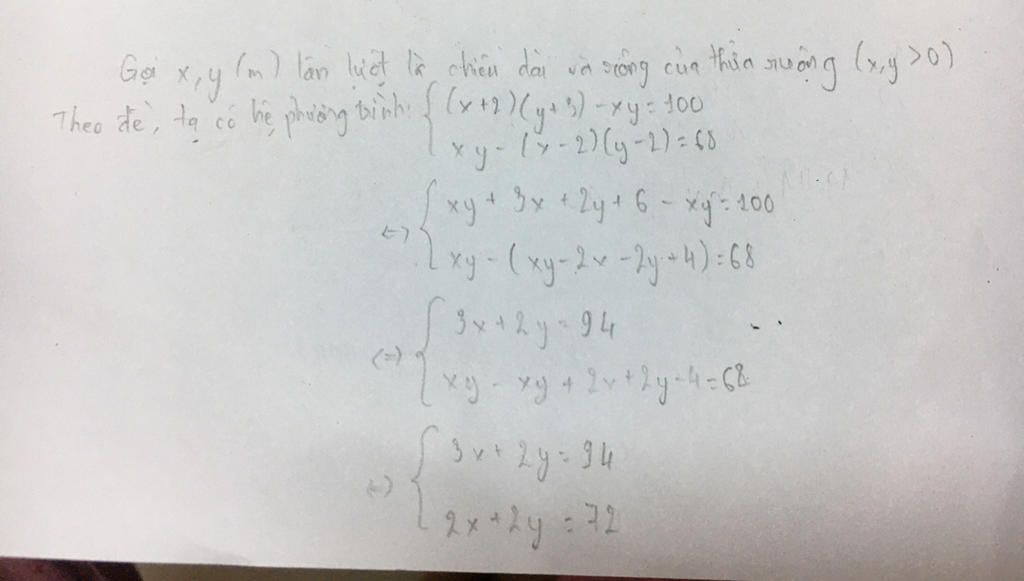 Gọi x, y (m) lần lượt là chiều dài và rộng của thửa ruộng (x,y >0)
Theo đề, ta có hệ phương trình: { (x+2)(y+3) - xy = 100
xy - (x-2)(y-2) = 68
<=> { xy + 3x + 2y + 6 - xy = 100
xy - (xy - 2x - 2y + 4) = 68
<=> { 3x + 2y = 94
xy - xy + 2x + 2y - 4 = 68
<=> { 3x + 2y = 94
2x + 2y = 72